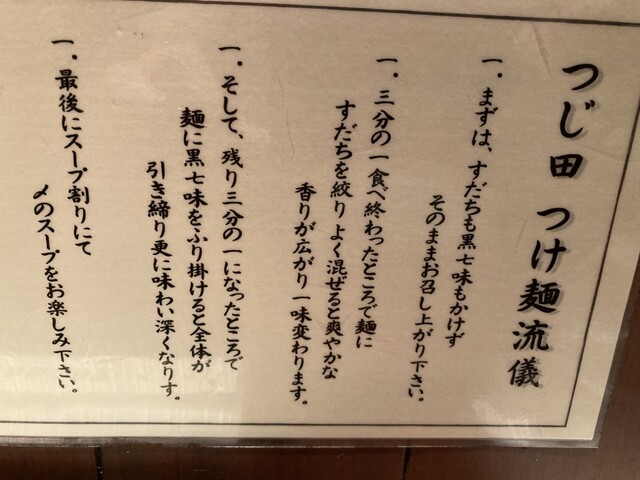 つじ田 つけ麺流儀
一．まずは、すだちも黒七味もかけず
そのままお召し上がり下さい。
一．三分の一食べ終わったところで麺に
すだちを絞りよく混ぜると爽やかな
香りが広がり一味変わります。
一．そして、残り三分の一になったところで
麺に黒七味をふり掛けると全体が
引き締り更に味わい深くなりす。
一．最後にスープ割りにて
〆のスープをお楽しみ下さい。